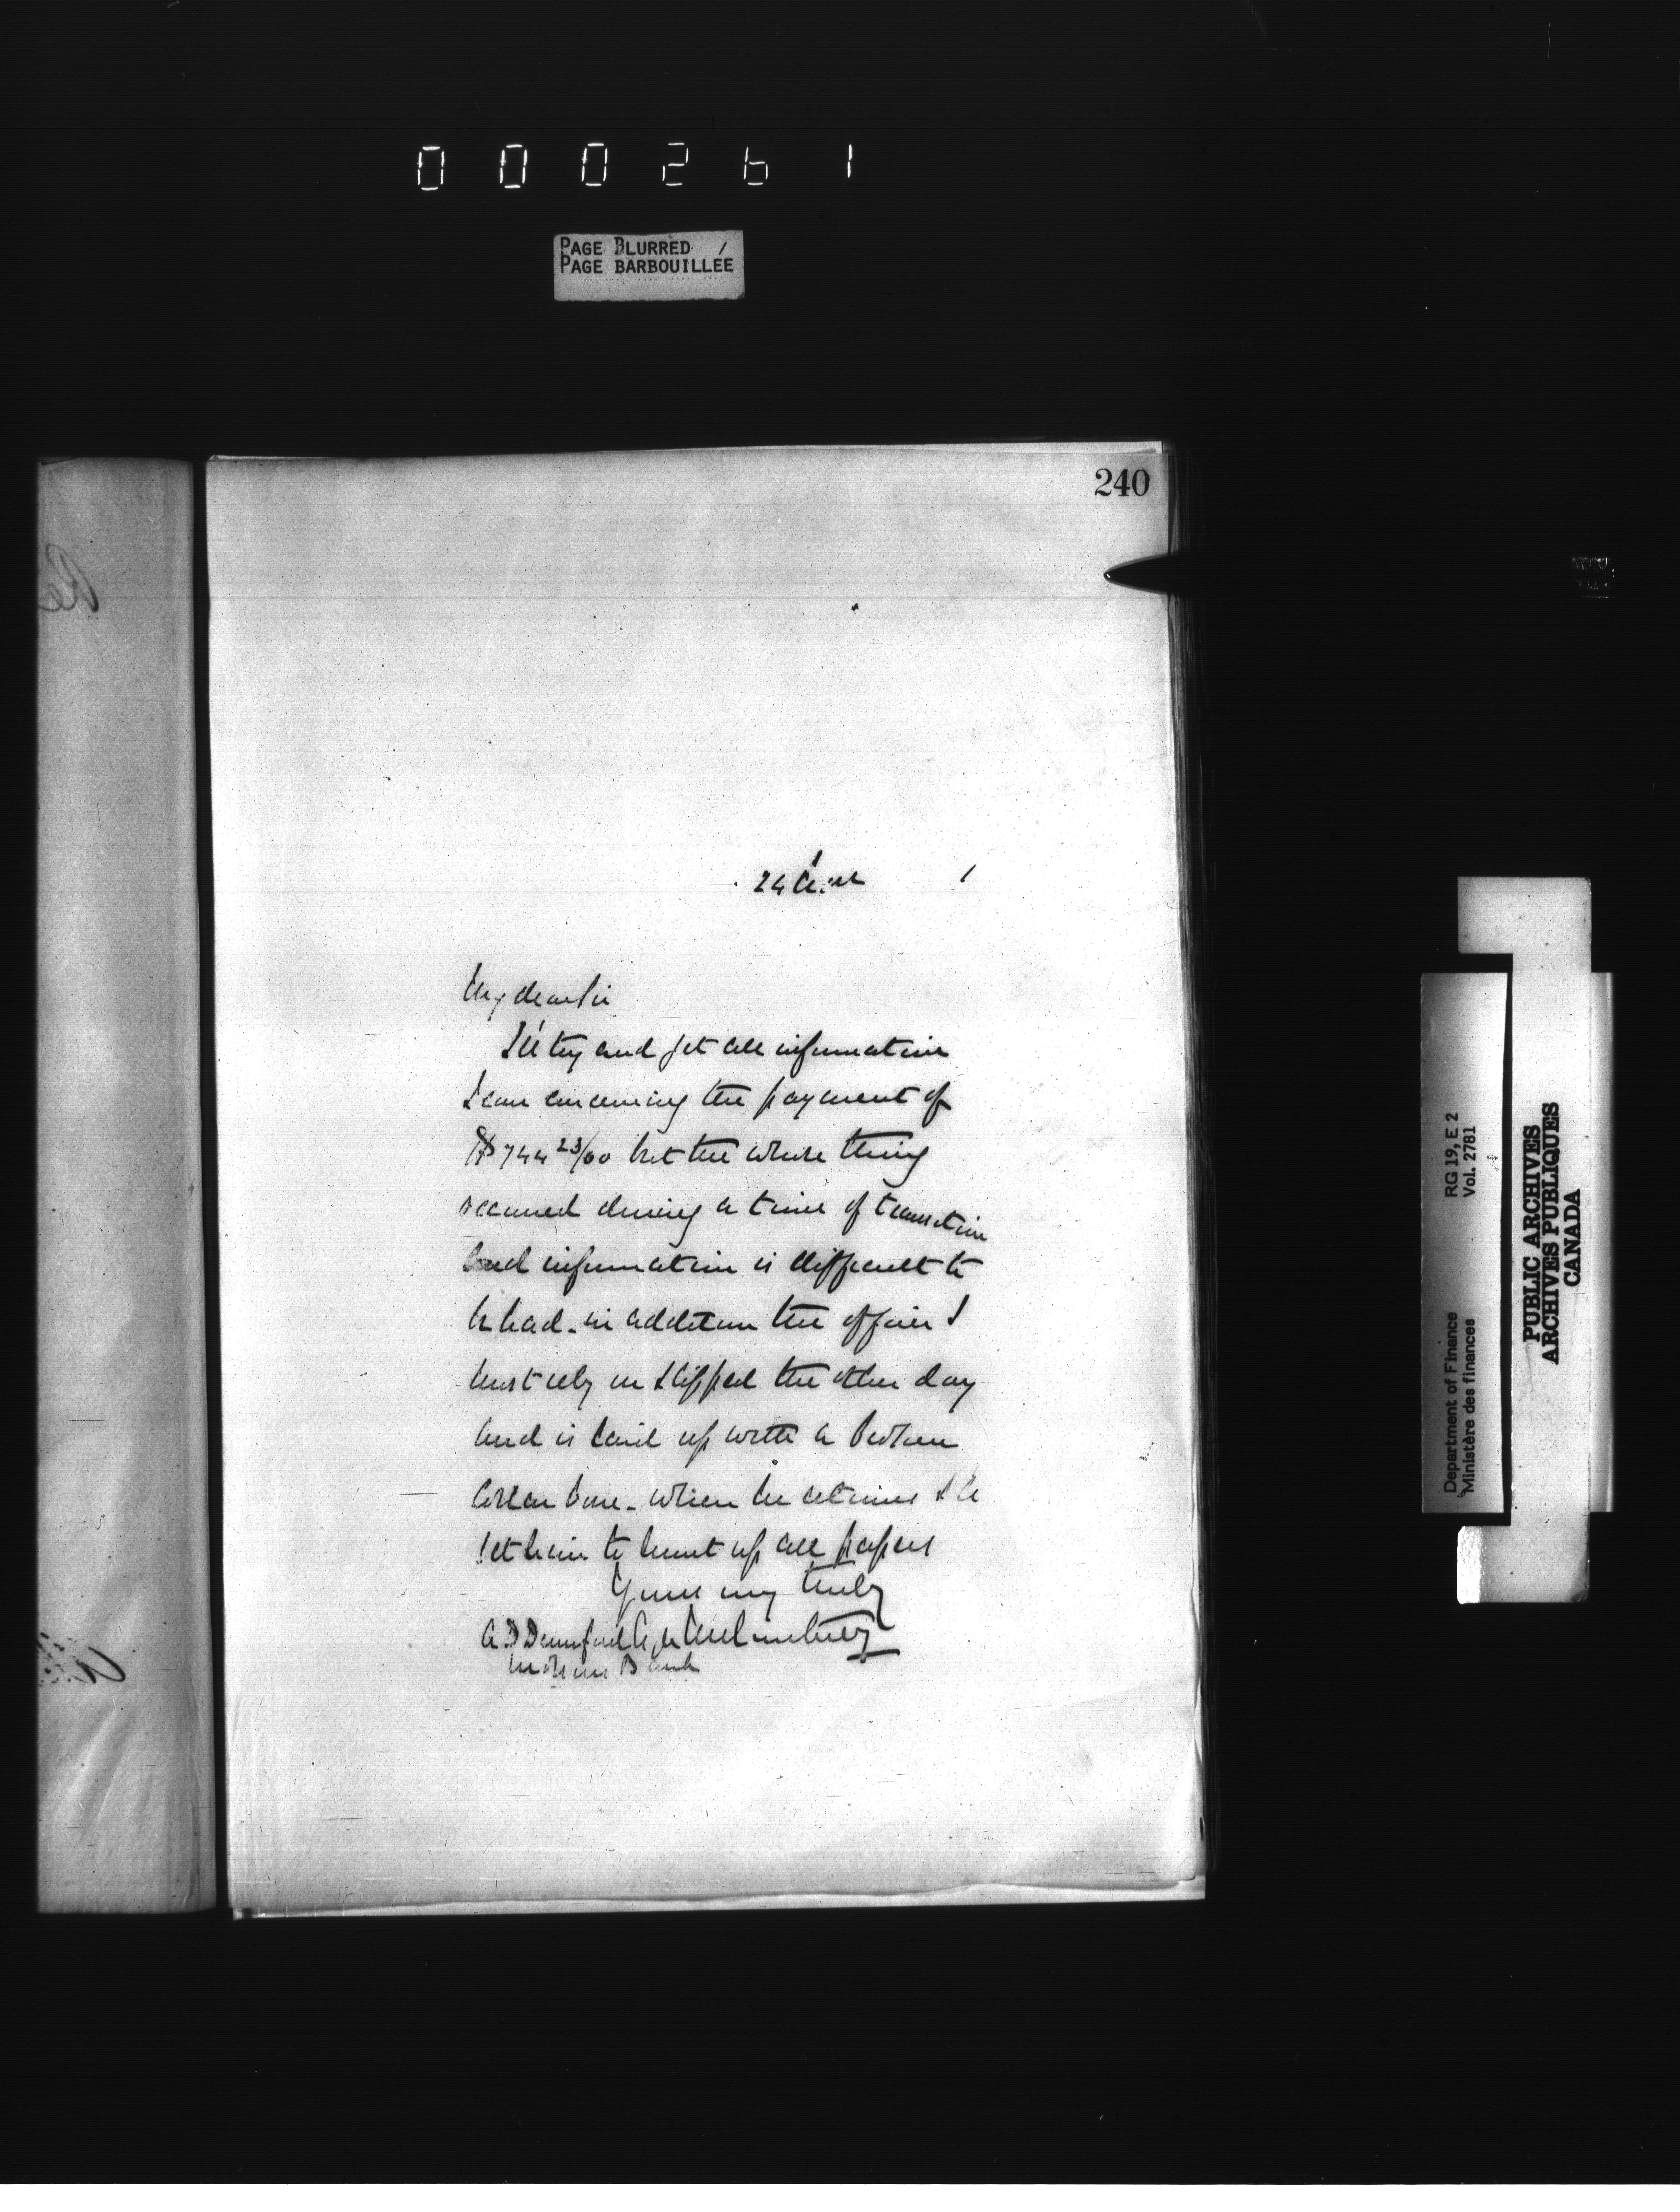 000261
PAGE BLURRED
PAGE BARBOUILLÉE
240
24
My dear Sir
I'll try and get all information
I can concerning the payment of
$744 23/00 but the whole thing
occurred during a time of transition
and information is difficult to
be had - in addition the officer I
must rely on slipped the other day
and is laid up with a broken
collar bone - when he returns I'll
set him to hunt up all papers
Yours very truly
A. D Durnford
Molsons Bank
Department of Finance RG 19, E 2
Ministère des finances Vol. 2781
PUBLIC ARCHIVES
ARCHIVES PUBLIQUES
CANADA